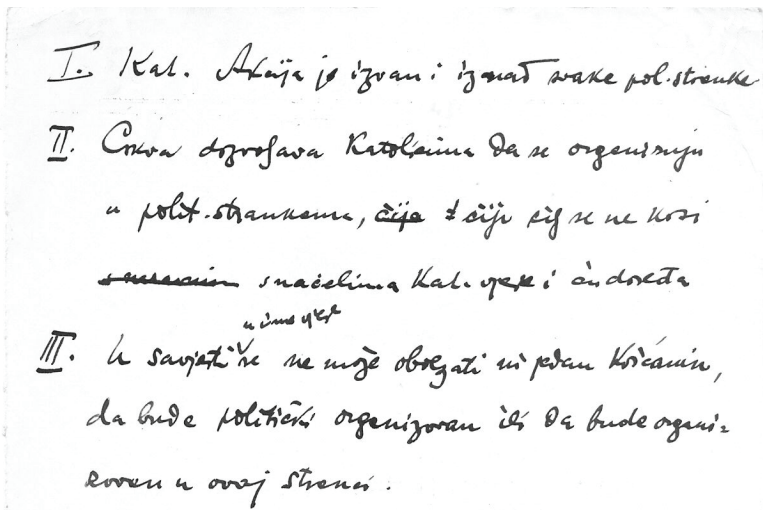 I. Kat. Akcija je izvan i iznad svake pol. stranke
II. Crkva dozvoljava Katolicima da se organizuju
u polit. strankama, čija čiji cilj se ne kosi
s načelima Kat. vjere i ćudoređa
u ime vjere
III. U savjesti se ne može obvezati ni jedan kršćanin,
da bude politički organizovan ili da bude organi-
zovan u ovoj stranci.